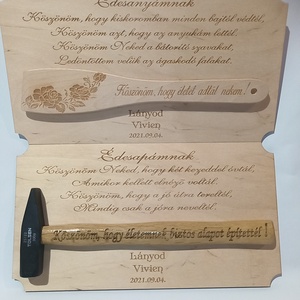 Édesanyámnak
Köszönöm, hogy kiskoromban minden bajtól védtél,
Köszönöm azt, hogy az anyukám lettél.
Köszönöm Neked a bíztató szavakat,
Ledöntöttem velük az ágaskodó falakat.
Köszönöm, hogy életet adtál nekem!
Lányod
Vivien
2021.09.04.
Édesapámnak
Köszönöm Neked, hogy két kezeddel óvtál,
Amikor kellett elnéző voltál.
Köszönöm, hogy a jó útra tereltél,
Mindig csak a jóra neveltél.
Köszönöm, hogy életemnek biztos alapot építettél !
Lányod
Vivien
2021.09.04.